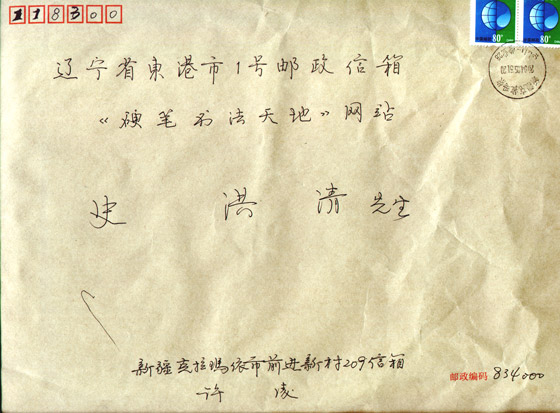 118300
辽宁省東港市1号邮政信箱
《硬笔书法天地》网站
史洪清先生
新疆克拉玛依市前进新村209信箱
许凌
邮政编码 834000
80分 80分